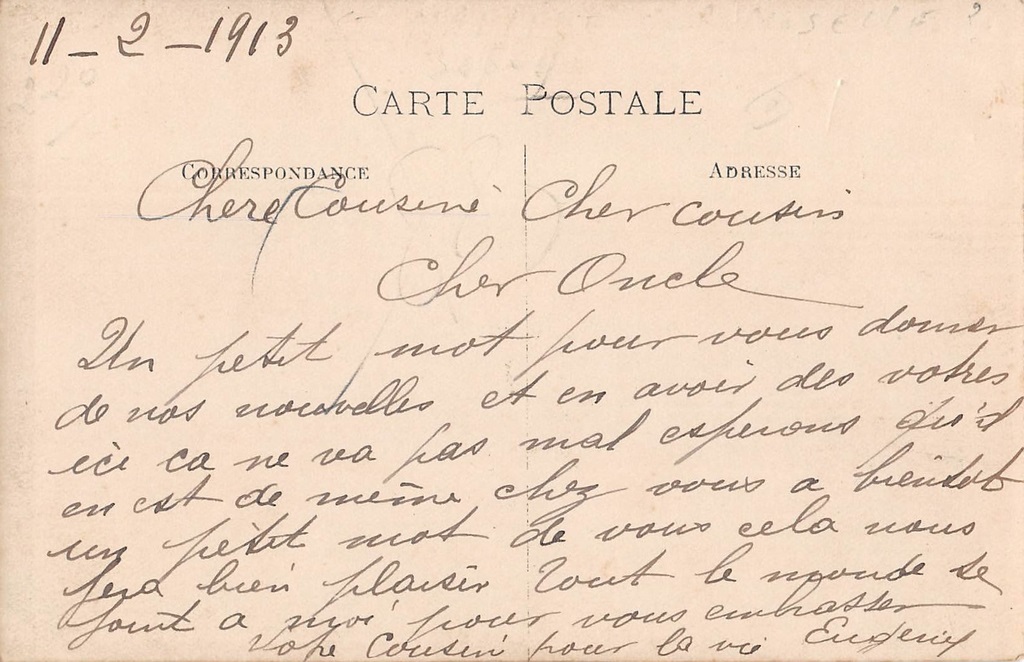 11 - 2 - 1913
CARTE POSTALE
CORRESPONDANCE
ADRESSE
Chere Cousine Cher cousin
Cher Oncle
Un petit mot pour vous donner
de nos nouvelles et en avoir des votres
ici ca ne va pas mal esperons qu'il
en est de même chez vous a bientot
un petit mot de vous cela nous
fera bien plaisir Tout le monde se
joint a moi pour vous embrasser
Votre Cousin pour la vie